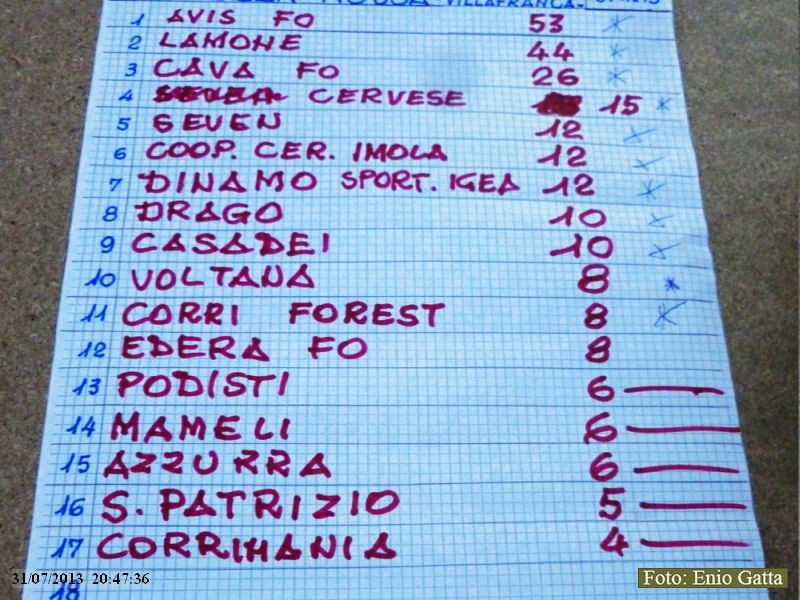 VILLAFRANCA-
1 AVIS FO 53
2 LAMONE 44
3 CAVA FO 26
4 CERVESE 15
5 SEVEN 12
6 COOP. CER. IMOLA 12
7 DINAMO SPORT. IGEA 12
8 DRAGO 10
9 CASADEI 10
10 VOLTANA 8
11 CORRI FOREST 8
12 EDERA FO 8
13 PODISTI 6
14 MAMELI 6
15 AZZURRA 6
16 S. PATRIZIO 5
17 CORRIMANIA 4
18
31/07/2013 20:47:36
Foto: Enio Gatta